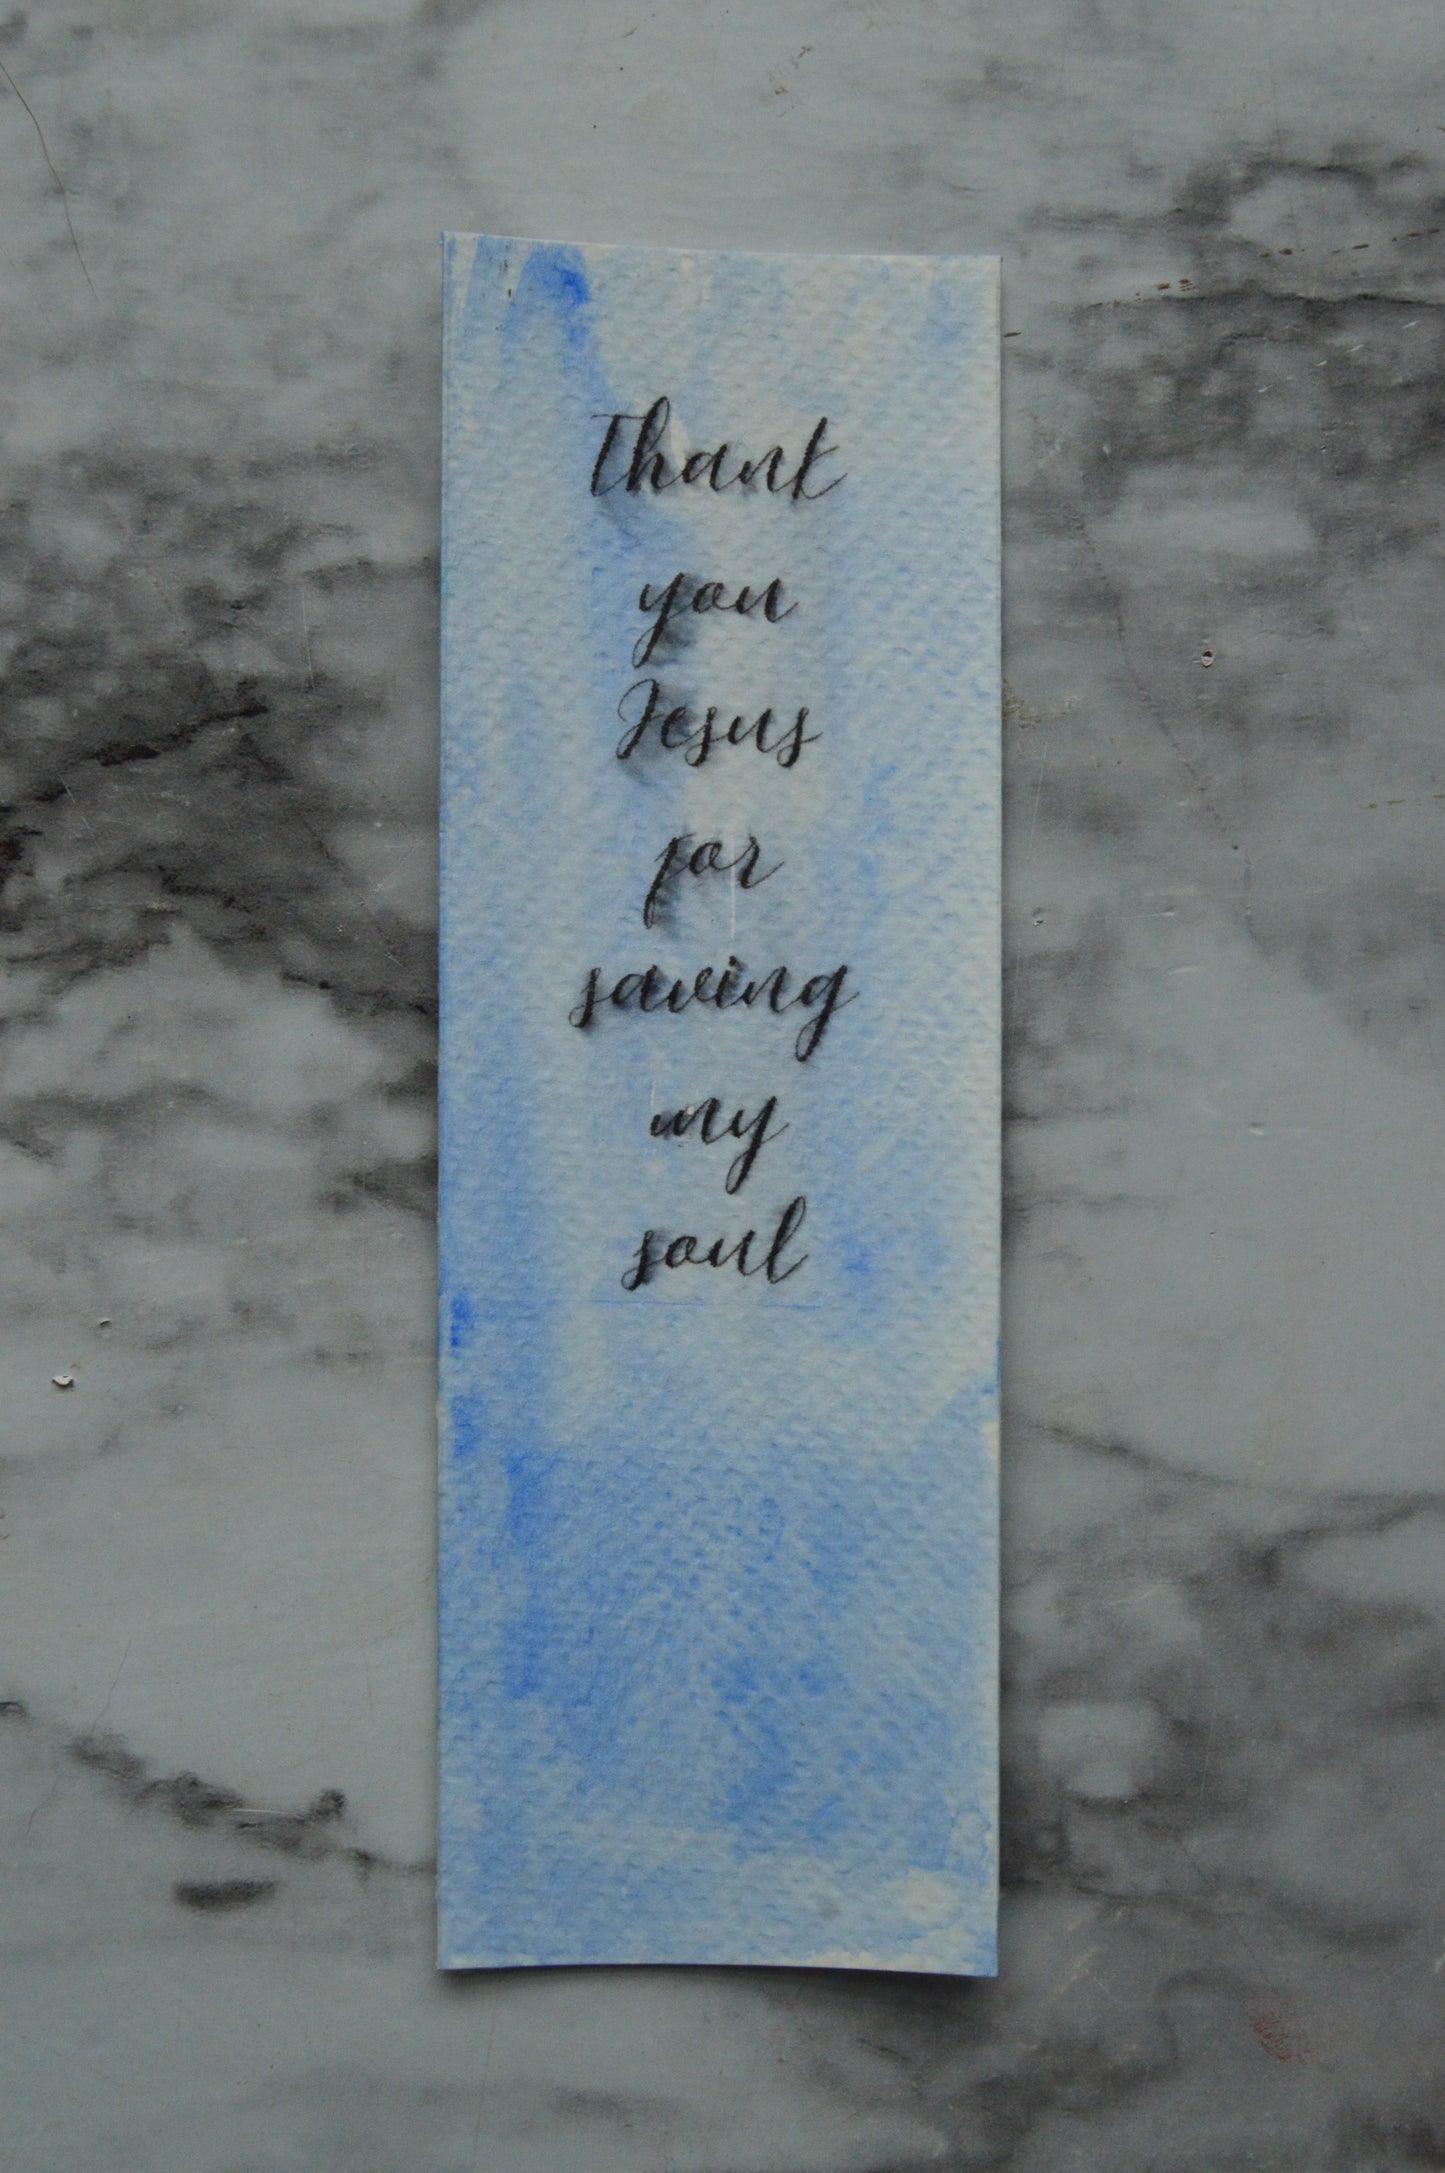 Thank
you
Jesus
for
saving
my
soul